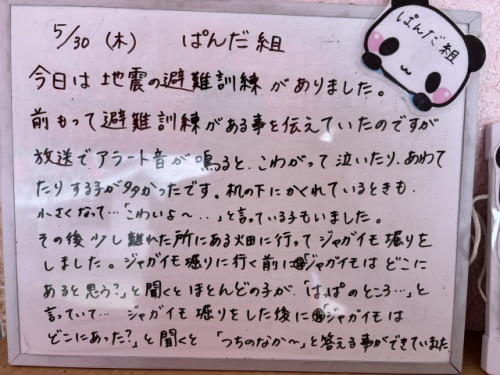 5/30 (木) ぱんだ組
ぱんだ組
今日は地震の避難訓練がありました。
前もって避難訓練がある事を伝えていたのですが
放送でアラート音が鳴ると、こわがって泣いたり、あわて
たりする子が多かったです。机の下にかくれているときも、
小さくなって…「こわいよ〜‥」と言っている子もいました。
その後少し離れた所にある畑に行ってジャガイモ堀りを
しました。ジャガイモ堀りに行く前に「ジャガイモはどこに
あると思う?」と聞くとほとんどの子が、「はっぱのところ…」と
言っていて… ジャガイモ堀りをした後に「ジャガイモは
どこにあった?」と聞くと「つちのなか〜」と答える事ができていました